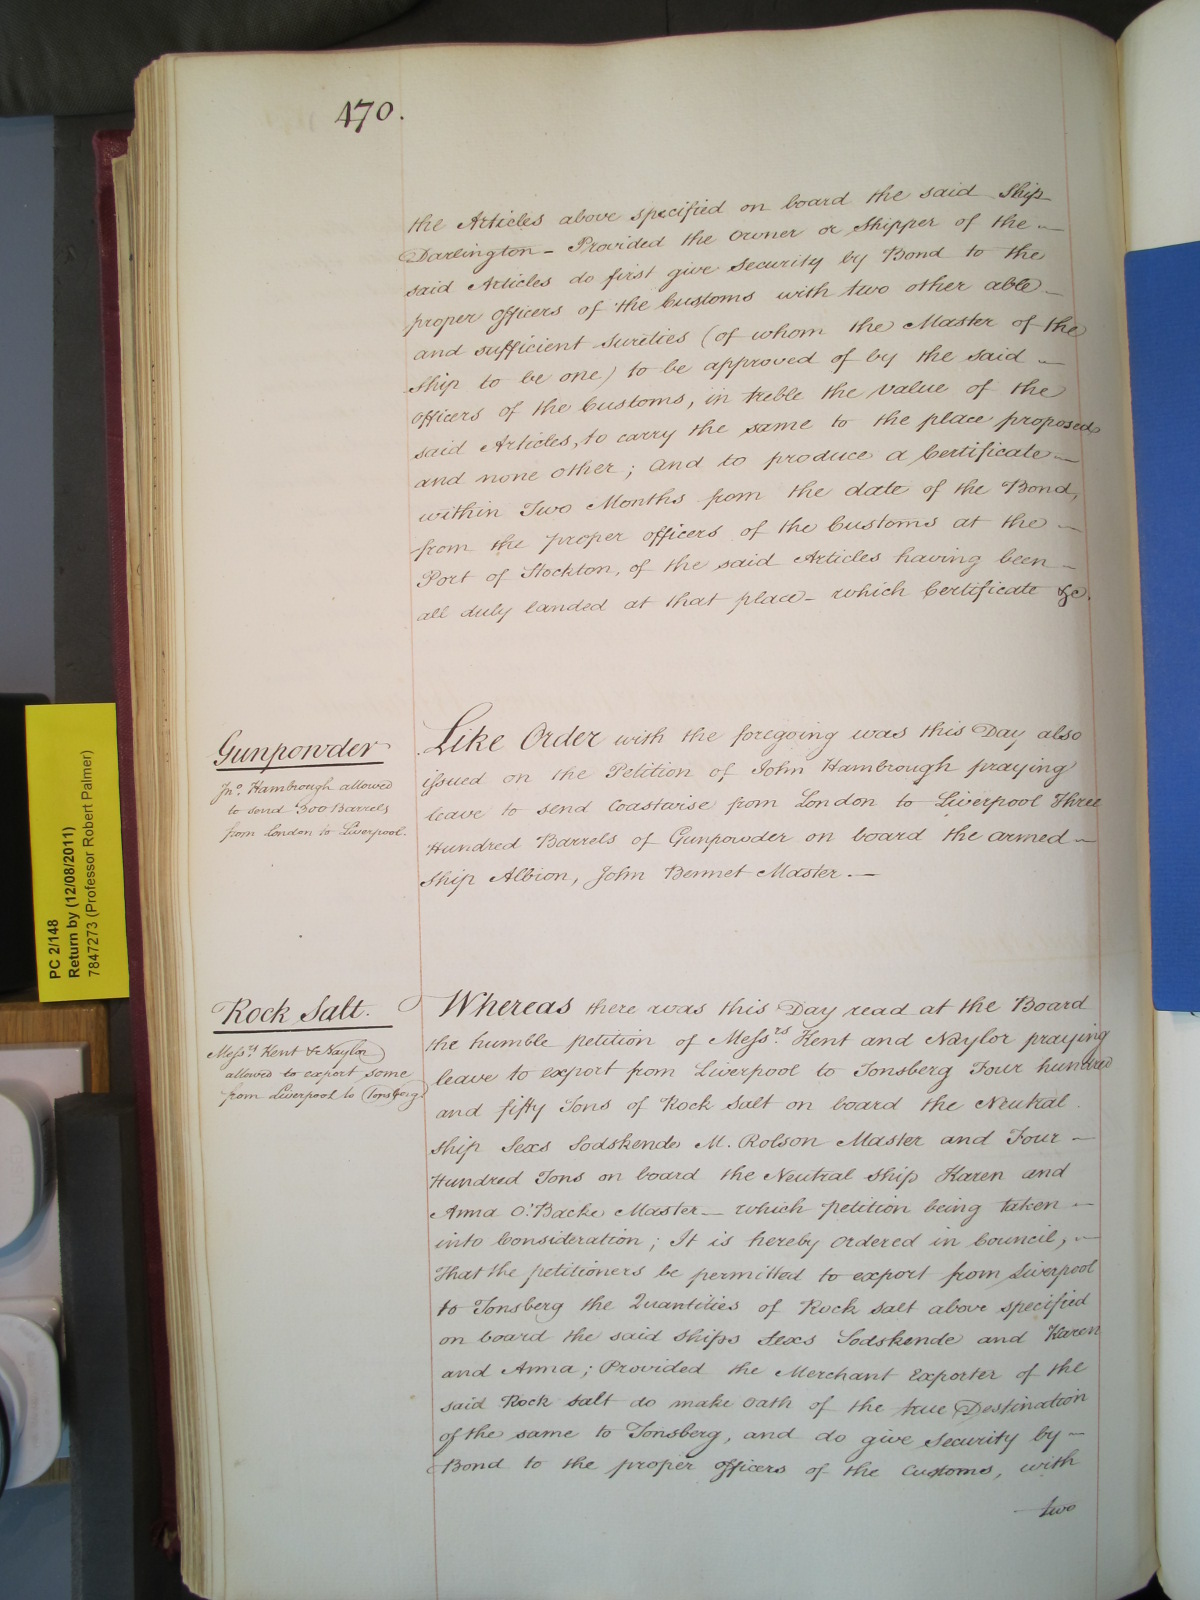 470.
the Articles above specified on board the said Ship
Darlington – Provided the Owner or Shipper of the –
said Articles do first give Security by Bond to the
proper Officers of the Customs with two other able –
and sufficient Sureties (of whom the Master of the
Ship to be one) to be approved of by the said –
Officers of the Customs, in treble the Value of the
said Articles, to carry the same to the place proposed
and none other; and to produce a Certificate –
within Two Months from the date of the Bond,
from the proper Officers of the Customs at the –
Port of Stockton, of the said Articles having been –
all duly landed at that place – which Certificate &c.
Gunpowder
Jno. Hambrough allowed
to send 300 Barrels
from London to Liverpool.
Like Order with the foregoing was this Day also
issued on the Petition of John Hambrough praying
leave to send Coastwise from London to Liverpool Three
Hundred Barrels of Gunpowder on board the armed –
Ship Albion, John Bennet Master. –
Rock Salt.
Messrs. Kent & Naylor
allowed to export some
from Liverpool to Tonsberg
Whereas there was this Day read at the Board
the humble petition of Messrs. Kent and Naylor praying
leave to export from Liverpool to Tonsberg Four hundred
and fifty Tons of Rock Salt on board the Neutral
Ship Sexs Sodskende M. Rolson Master and Four –
Hundred Tons on board the Neutral Ship Karen and
Anna O. Backe Master – which petition being taken –
into Consideration; It is hereby Ordered in Council, –
That the petitioners be permitted to export from Liverpool
to Tonsberg the Quantities of Rock Salt above specified
on board the said Ships Sexs Sodskende and Karen
and Anna; Provided the Merchant Exporter of the
said Rock Salt do make Oath of the true Destination
of the same to Tonsberg, and do give Security by –
Bond to the proper Officers of the Customs, with
two
PC 2/148
Return by (12/08/2011)
7847273 (Professor Robert Palmer)